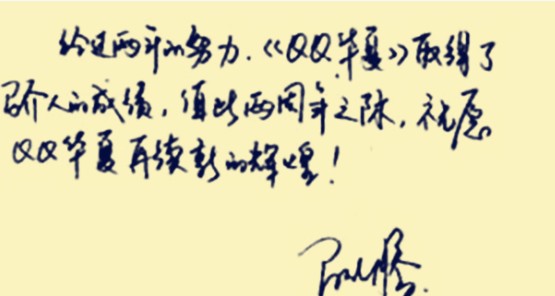 经过两年的努力，《QQ华夏》取得了
骄人的成绩，值此两周年之际，祝愿
QQ华夏再续新的辉煌！
马化腾